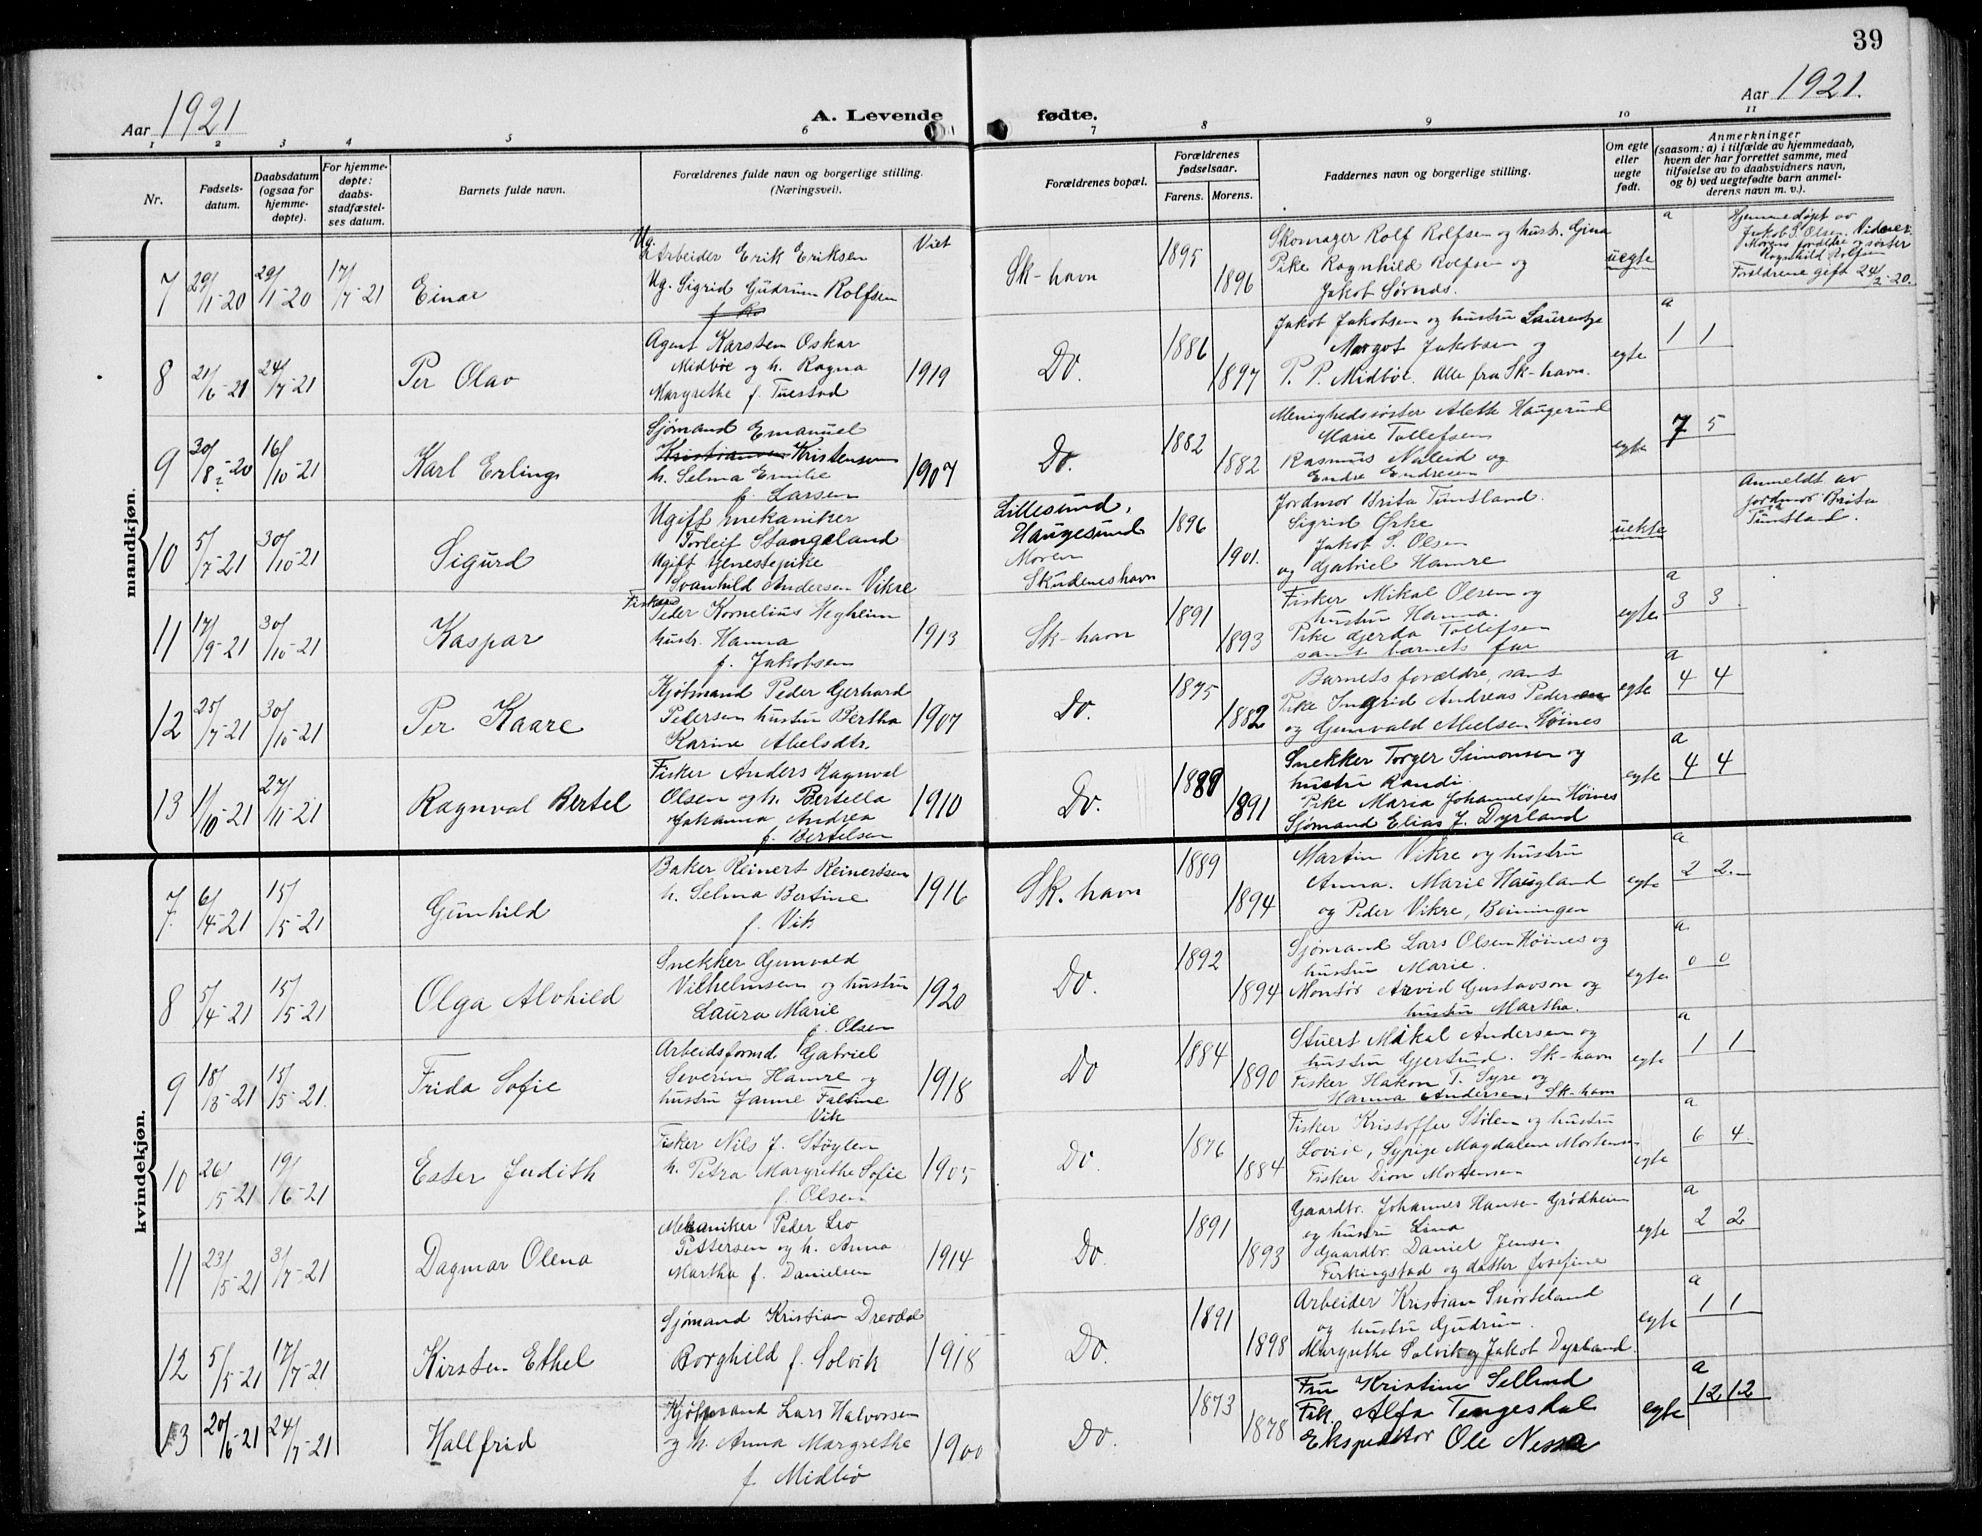 39
Aar 1921
A. Levende fødte.
Aar 1921.
1 2 3 4 5 6 7 8 9 10 11
Nr.
Fødsels-
datum.
Daabsdatum
(ogsaa for
hjemme-
døpte).
For hjemme-
døpte:
daabs
stadfæstel-
ses datum.
Barnets fulde navn.
Forældrenes fulde navn og borgerlige stilling.
(Næringsvei).
Viet
Forældrenes bopæl.
Forældrenes
fødselsaar.
Farens. Morens.
Faddernes navn og borgerlige stilling.
Om egte
eller
uegte
født.
Anmerkninger
(saasom: a) i tilfælde av hjemmedaab,
hvem der har forrettet samme, med
tilføielse av to daabsvidners navn,
og b) ved uegtefødte barn anmel-
derens navn m. v.).
mandkjøn.
7
29/1-20
29/1-20
17/7-21
Einar
Ug. Arbeider Erik Eriksen
Ug. Sigrid Gudrun Rolfsen
Sk-havn
1895
1896
Skomager Rolf Rolfsen og hustr. Gina
Pike Ragnhild Rolfsen og
Jakob Sørnds.
uegte
a
Hjemmedøpt av
Jakob S. Olsen. Vidner:
Morens forældre og søster
Ragnhild Rolfsen
Forældrene gift 24/2-20.
8
21/6-21
24/7-21
Per Olav
Agent Karsten Oskar
Midbøe og h. Ragna
Margrethe f. Tuestad
1919
Do.
1886
1897
Jakob Jakobsen og hustru Laurentze
Margot Jakobsen og
P. P. Midbøe. Alle fra Sk-havn.
egte
a
1 1
9
30/8-20
16/10-21
Karl Erling
Sjømand Emanuel
Kristiansen Kristensen
h. Selma Emilie
f. Larsen
1907
Do.
1882
1882
Menighedssøster Aleth Haugerud
Marie Tollefsen
Rasmus Naleid og
Endre Endresen
egte
7 5
10
5/7-21
30/10-21
Sigurd
Ugift mekaniker
Torleif Stangeland
Ugift tjenestepike
Svanhild Andersen Vikre
Lillesund,
Haugesund
Moren
Skudeneshavn
1896
1901.
Jordmor Brita Tuntland.
Sigrid Ørke
Jakob S. Olsen
og Gabriel Hamre
uekte
Anmeldt av
jordmor Brita
Tuntland.
11
17/9-21
30/10-21
Kaspar
Fisker
Peder Kornelius Vegheim
hustr. Hanna
f. Jakobsen
1913
Sk-havn
1891
1893
Fisker Mikal Olsen og
hustru Hanna.
Pike Gerda Tollefsen
samt barnets far
egte
a
3 3
12
25/7-21
30/10-21
Per Kaare
Kjøbmand Peder Gerhard
Pedersen hustru Bertha
Karine Abelsdtr.
1907
Do.
1875
1882
Barnets forældre, samt
Pike Ingrid Andreas Pedersen
og Gunvald Abelsen Høines
egte
a
4 4
13
1/10-21
27/11-21
Ragnval Bertel
Fisker Anders Ragnval
Olsen og h. Bertella
Johanna Andrea
f. Bertelsen
1910
Do.
1889
1891
Snekker Torger Simonsen og
hustru Randi
Pike Maria Johannessen Høines
Sjømand Elias J. Dyrland
egte
a
4 4
kvindekjøn.
7.
6/4-21
15/5-21
Gunhild
Baker Reinert Reinertsen
h. Selma Bertine
f. Vik
1916
Sk.havn
1889
1894
Martin Vikre og hustru
Anna. Marie Haugland
og Peder Vikre, Beiningen
egte
a
2 2.
8
5/4-21
15/5-21
Olga Alvhild
Snekker Gunvald
Vilhelmsen og hustru
Laura Marie
f. Olsen
1920
Do.
1892
1894
Sjømand Lars Olsen Høines og
hustru Marie.
Montør Arvid Gustavson og
hustru Martha.
egte
a
0 0
9
18/3-21
15/5-21.
Frida Sofie
Arbeidsformd Gabriel
Severin Hamre og
hustru Janne Faltine
Vik
1918
Do
1884
1890
Stuert Mikal Andersen og
hustru Gjertrud. Sk-havn
Fisker Hakon T. Syre og
Hanna Andersen, Sk-havn
egte
a
1 1
10
26/5-21
19/6-21
Ester Judith
Fisker Nils J. Støylen
h. Petra Margrethe Sofie
f. Olsen
1905
Do.
1876
1884
Fisker Kristoffer Stølen og hustru
Lovise, Sypige Magdalene Mortensen
Fisker Dion Mortensen
egte
a
6 4.
11
23/5-21
3/7-21
Dagmar Olena
Mekaniker Peder Leo
Pettersen og h. Anna
Martha f. Danielsen
1914
Do.
1891
1893
Gaardbr. Johannes Hansen Grødheim
og hustru Lina
Gaardbr. Daniel Jensen
Ferkingstad og datter Josefine
egte
a
2 2
12
5/5-21
17/7-21
Kirsten Ethel
Sjømand Kristian Drevdal
Borghild f. Solvik
1918
Do.
1891
1898
Arbeider Kristian Snørteland
og hustru Gudrun.
Margrethe Solvik og Jakob Dyrland.
egte
a
1 1
13
20/6-21
24/7-21
Hallfrid
Kjøbmand Lars Halvorsen
og h. Anna Margrethe
f. Midbø
1900
Do.
1873
1878
Fru Kristine Sellend
Frk. Alfa Tengesdal
Ekspeditør Ole Nessa
egte
a
12 12